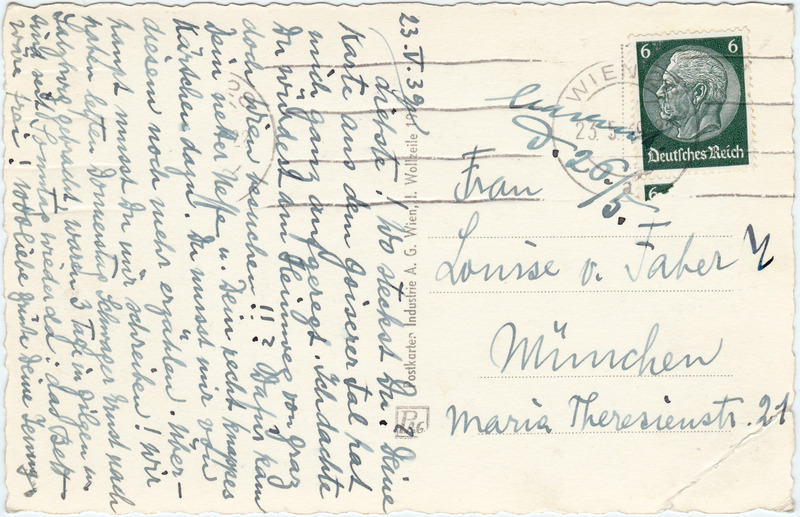 23.V.39.
Liebste! Wo steckst Du? Deine
Karte aus dem Goiserer Tal hat
mich ganz aufgeregt. Ich dachte
Du würdest am Heimweg von Graz
doch Wien besuchen!!? Dafür kam
Dein netter Neffe u. Dein recht knappes
Kärtchen dazu. Du musst mir von
diesem noch mehr erzählen. Über-
haupt musst Du mir schreiben! Wir
letzten Donnerstag Schwager und nach
Salzburg gebracht, waren 3 Tage in Gilgen u.
sind seit Sonntag wieder da; das Bett
wäre frei! 1000 liebe Grüße Deine
Postkarten Industrie A. G. Wien, I. Wollzeile
PAG
WIEN
23.5.
6 6
Deutsches Reich
6
26/5.
Frau
Louise v. Faber
München
Maria Theresienstr. 21